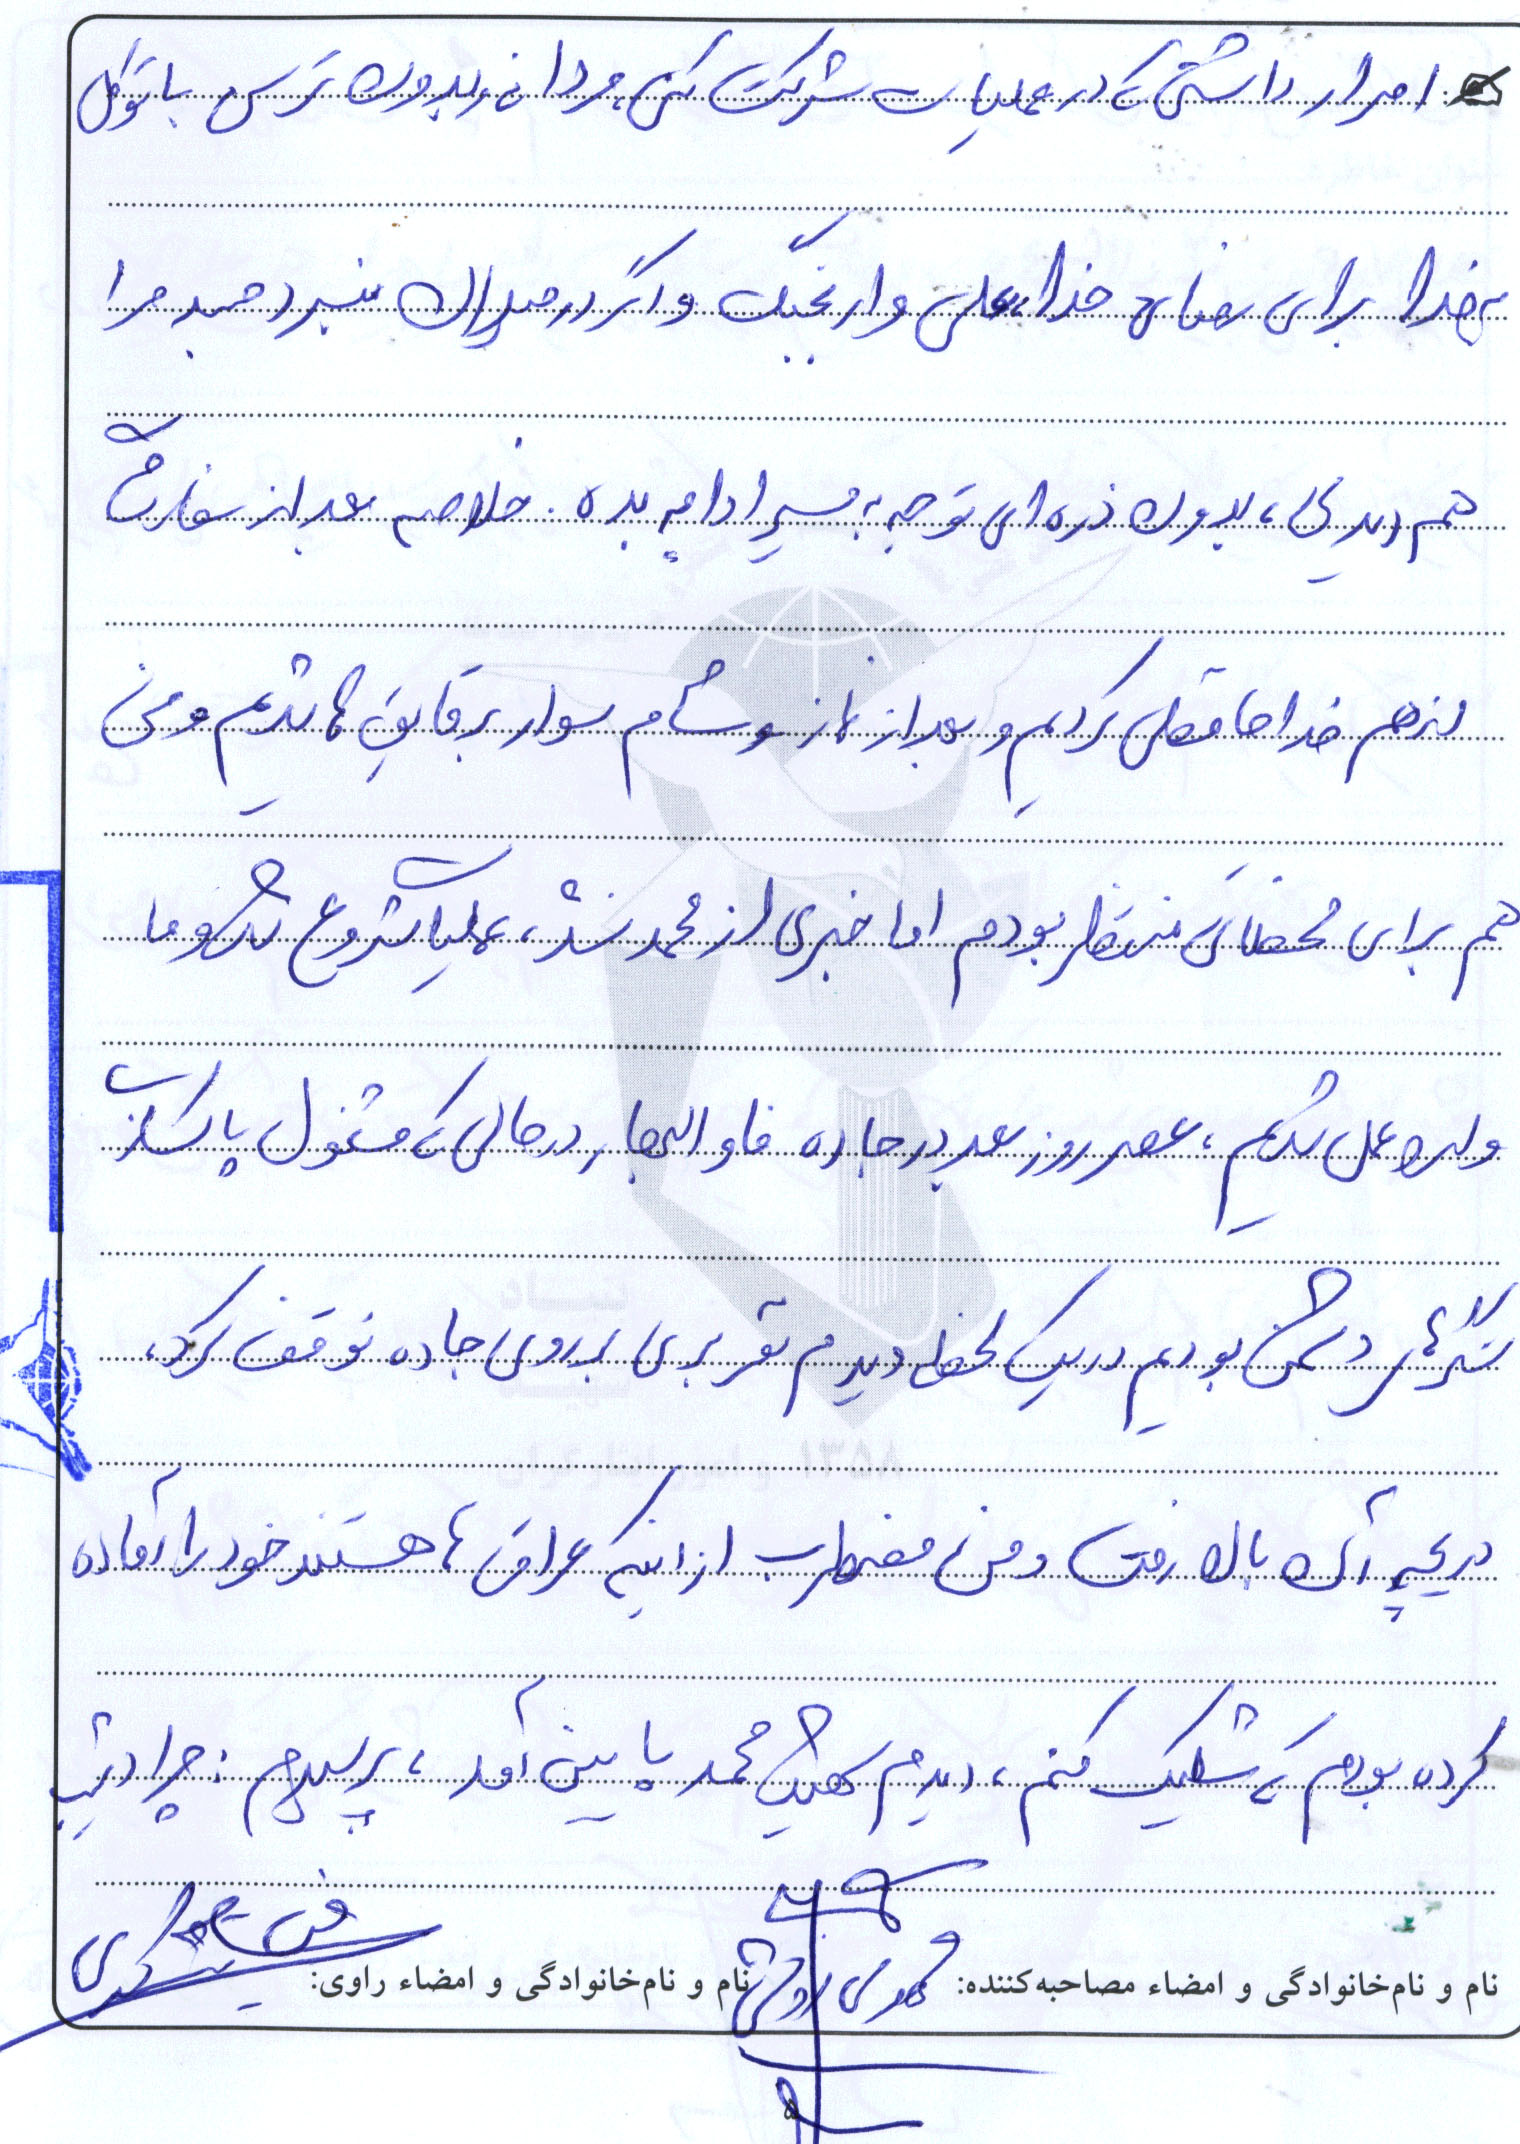 اصرار داشتی که در عملیات شرکت کنی، مردانه و بدون ترس با توکل
به خدا برای رضای خدا علی وار بجنگ و اگر در میدان نبرد جسد مرا
هم دیدی، بدون ذره ای توجه به مسیر ادامه بده. خلاصه بعد از سفارش
از هم خداحافظی کردیم و بعد از نماز و شام سوار بر قایق ها شدیم و من
هم برای لحظاتی منتظر بودم اما خبری از محمد نشد، عملیات شروع شد و ما
وارد عمل شدیم، عصر روز بعد بر جاده فاو البحار در حالی که مشغول پاکسازی
سنگرهای دشمن بودیم در یک لحظه دیدم نفربری بر روی جاده توقف کرد،
دریچه آن بالا رفت و من که مضطرب از اینکه عراقی ها هستند خود را آماده
کرده بودم که شلیک کنم، دیدم شهید محمد پایین آمد، پرسیدم: چرا دیشب
نام و نام‌خانوادگی و امضاء مصاحبه‌کننده: نام و نام‌خانوادگی و امضاء راوی:
بنیاد
شهید
و امور ایثارگران ۱۳۵۸
۵